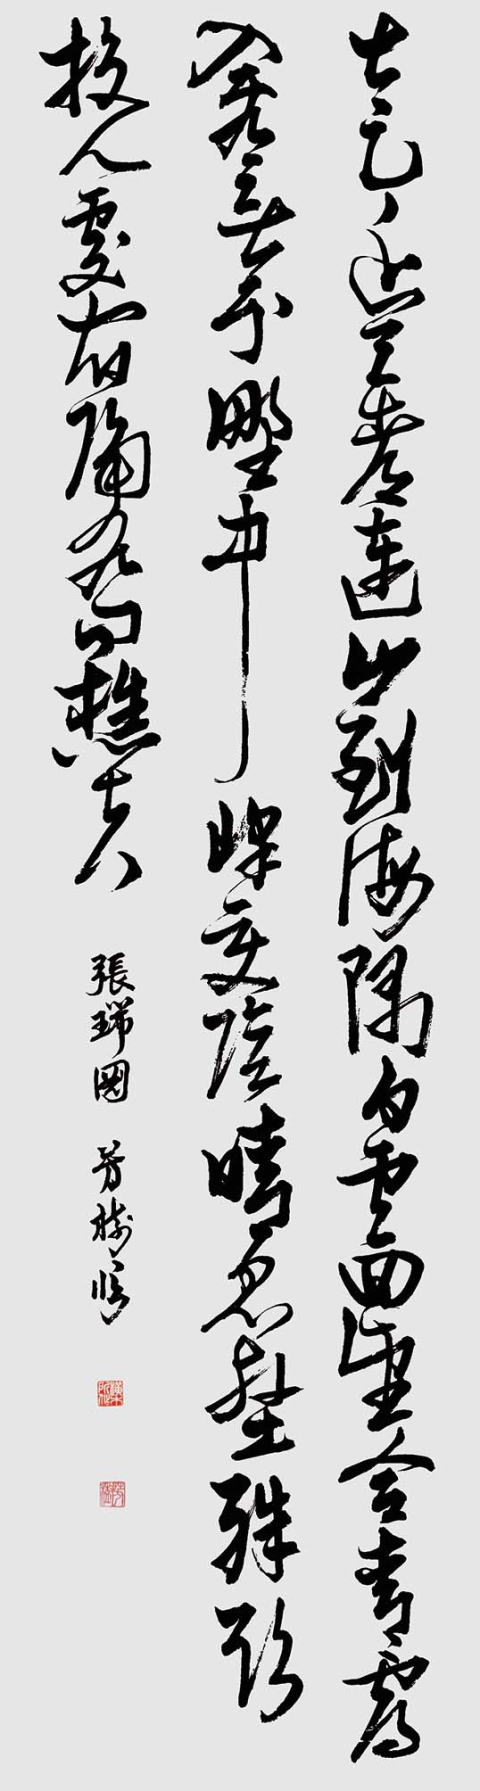 太乙近天都連山到海隅白雲回望合青靄
入看無分野中峰變陰晴眾壑殊欲
投人處宿隔水問樵夫 張瑞圖 芳樹臨